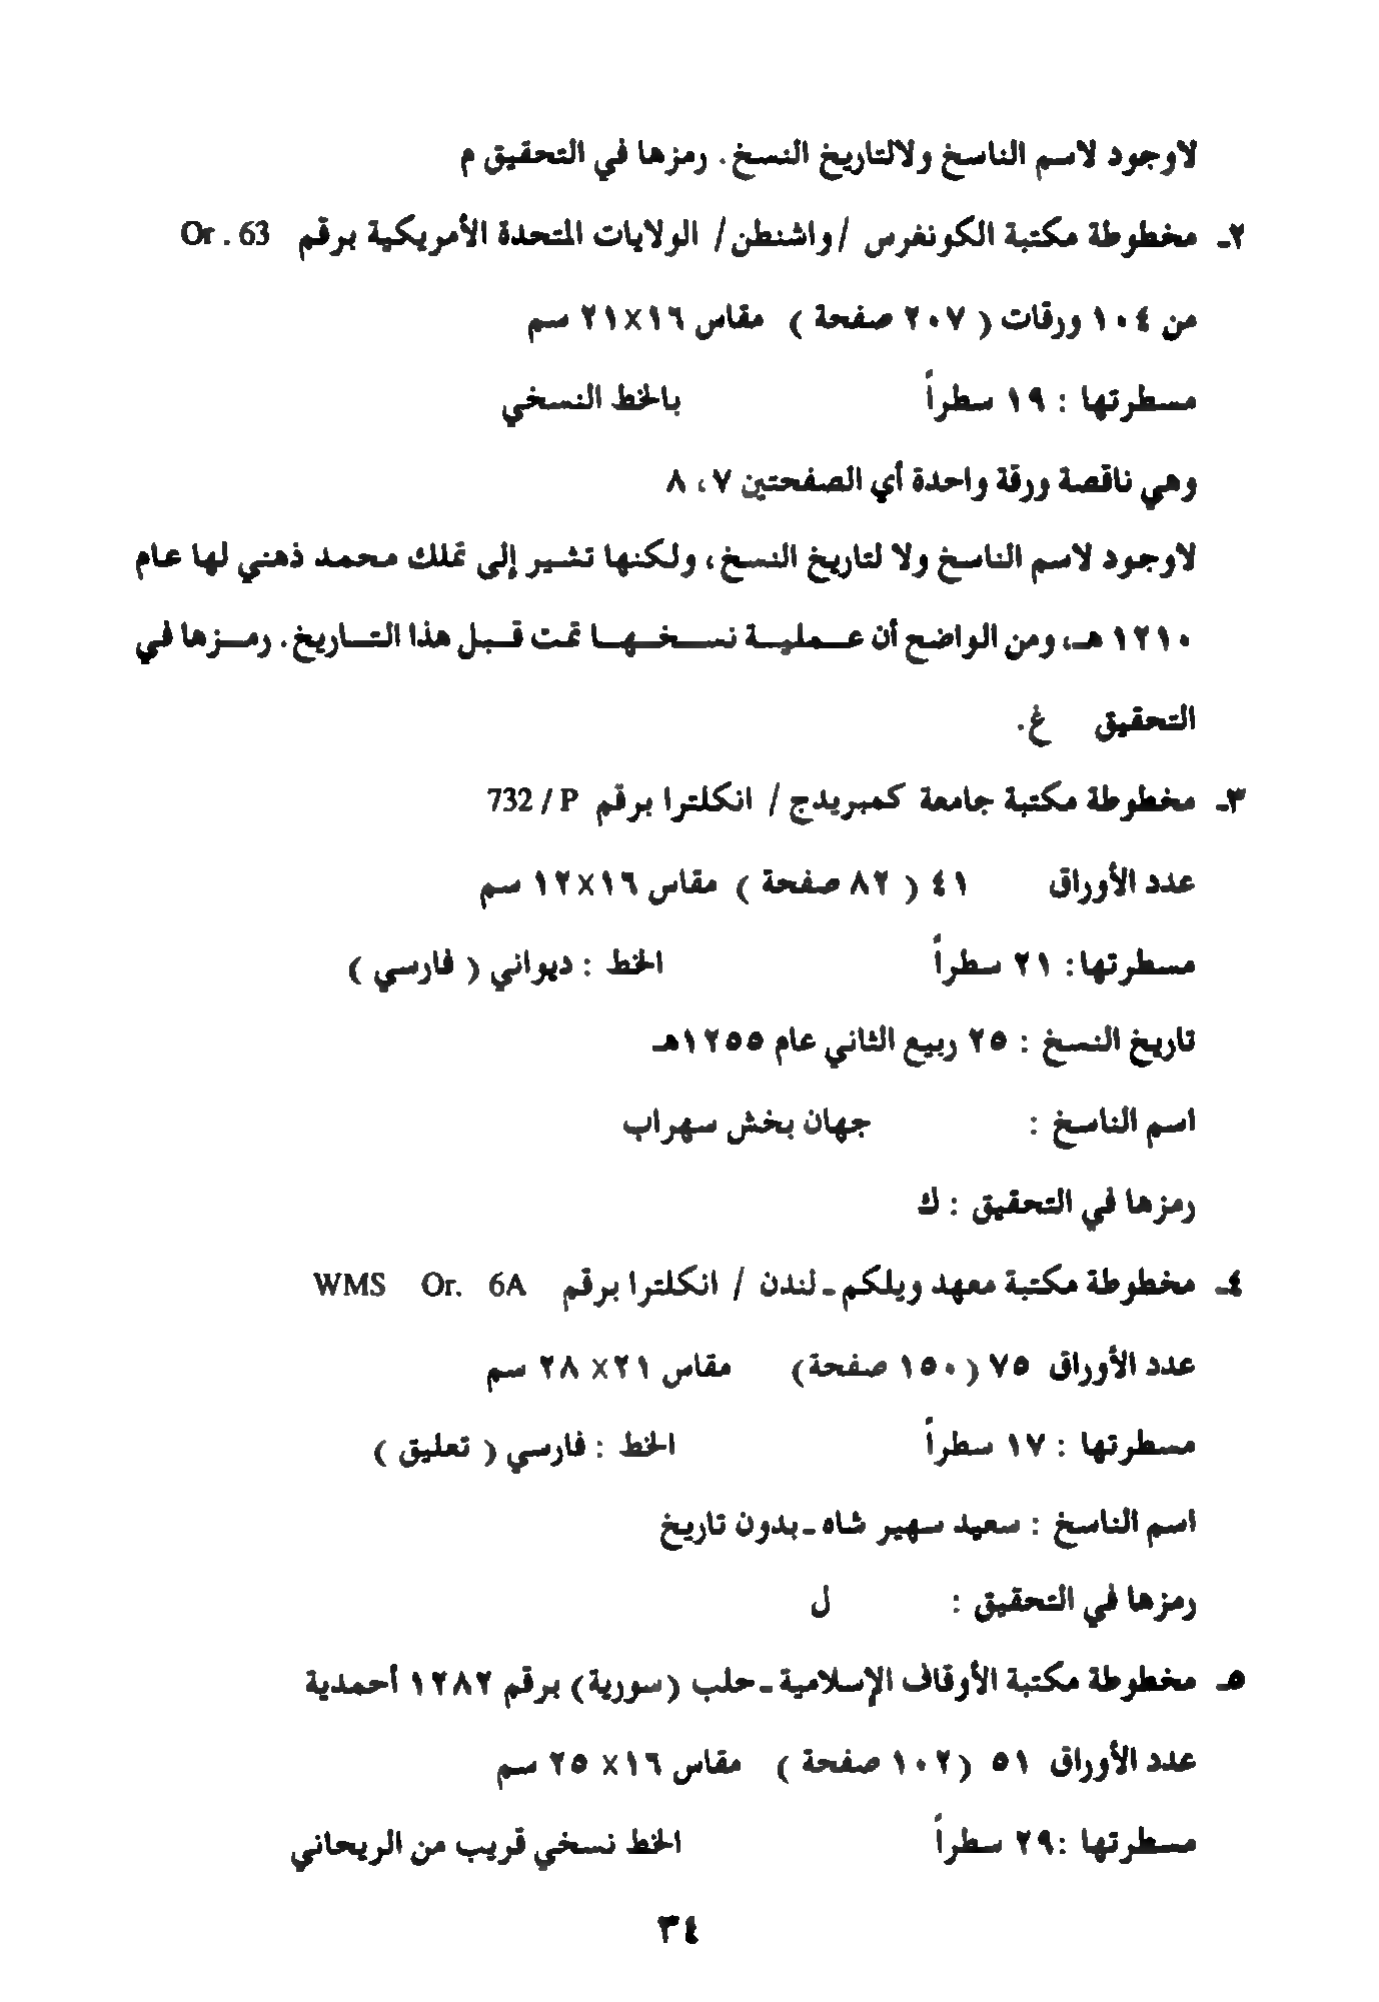 لاوجود لاسم الناسخ ولالتاريخ النسخ . رمزها في التحقيق م
٢ـ مخطوطة مكتبة الكونغرس /واشنطن/ الولايات المتحدة الأمريكية برقم Or . 63
من ١٠٤ ورقات ( ٢٠٧ صفحة ) مقاس ١٦×٢١ سم
مسطرتها : ١٩ سطراً بالخط النسخي
وهي ناقصة ورقة واحدة أي الصفحتين ٧ ، ٨
لاوجود لاسم الناسخ ولا لتاريخ النسخ ، ولكنها تشير إلى تملك محمد ذهني لها عام
١٢١٠ هـ، ومن الواضح أن عـملية نسـخـهـا تمت قـبل هذا التـاريخ . رمـزها في
التحقيق غ .
٣ـ مخطوطة مكتبة جامعة كمبريدج / انكلترا برقم 732 / P
عدد الأوراق ٤١ ( ٨٢ صفحة ) مقاس ١٦×١٢ سم
مسطرتها : ٢١ سطراً الخط : ديواني ( فارسي )
تاريخ النسخ : ٢٥ ربيع الثاني عام ١٢٥٥هـ
اسم الناسخ : جهان بخش سهراب
رمزها في التحقيق : ك
٤ـ مخطوطة مكتبة معهد ويلكم ـ لندن / انكلترا برقم WMS Or. 6A
عدد الأوراق ٧٥ ( ١٥٠ صفحة) مقاس ٢١× ٢٨ سم
مسطرتها : ١٧ سطراً الخط : فارسي ( تعليق )
اسم الناسخ : سعيد سهير شاه ـ بدون تاريخ
رمزها في التحقيق : ل
٥ـ مخطوطة مكتبة الأوقاف الإسلامية ـ حلب (سورية) برقم ١٢٨٢ أحمدية
عدد الأوراق ٥١ (١٠٢ صفحة ) مقاس ١٦× ٢٥ سم
مسطرتها :٢٩ سطراً الخط نسخي قريب من الريحاني
٣٤